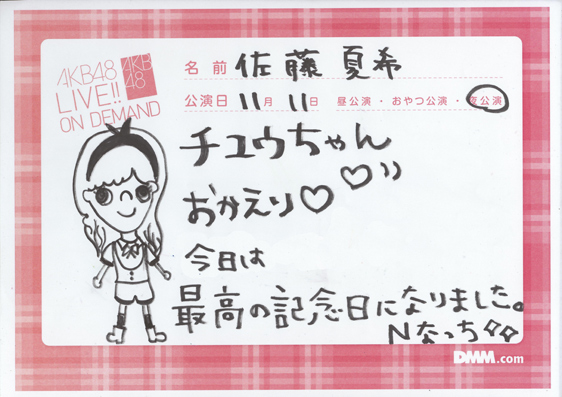 AKB48
LIVE!!
ON DEMAND
AKB
48
名前 佐藤 夏希
公演日 11月 11日 昼公演・おやつ公演・夜公演
チュウちゃん
おかえり♡♡
今日は
最高の記念日になりました。
Nなっち
DMM.com